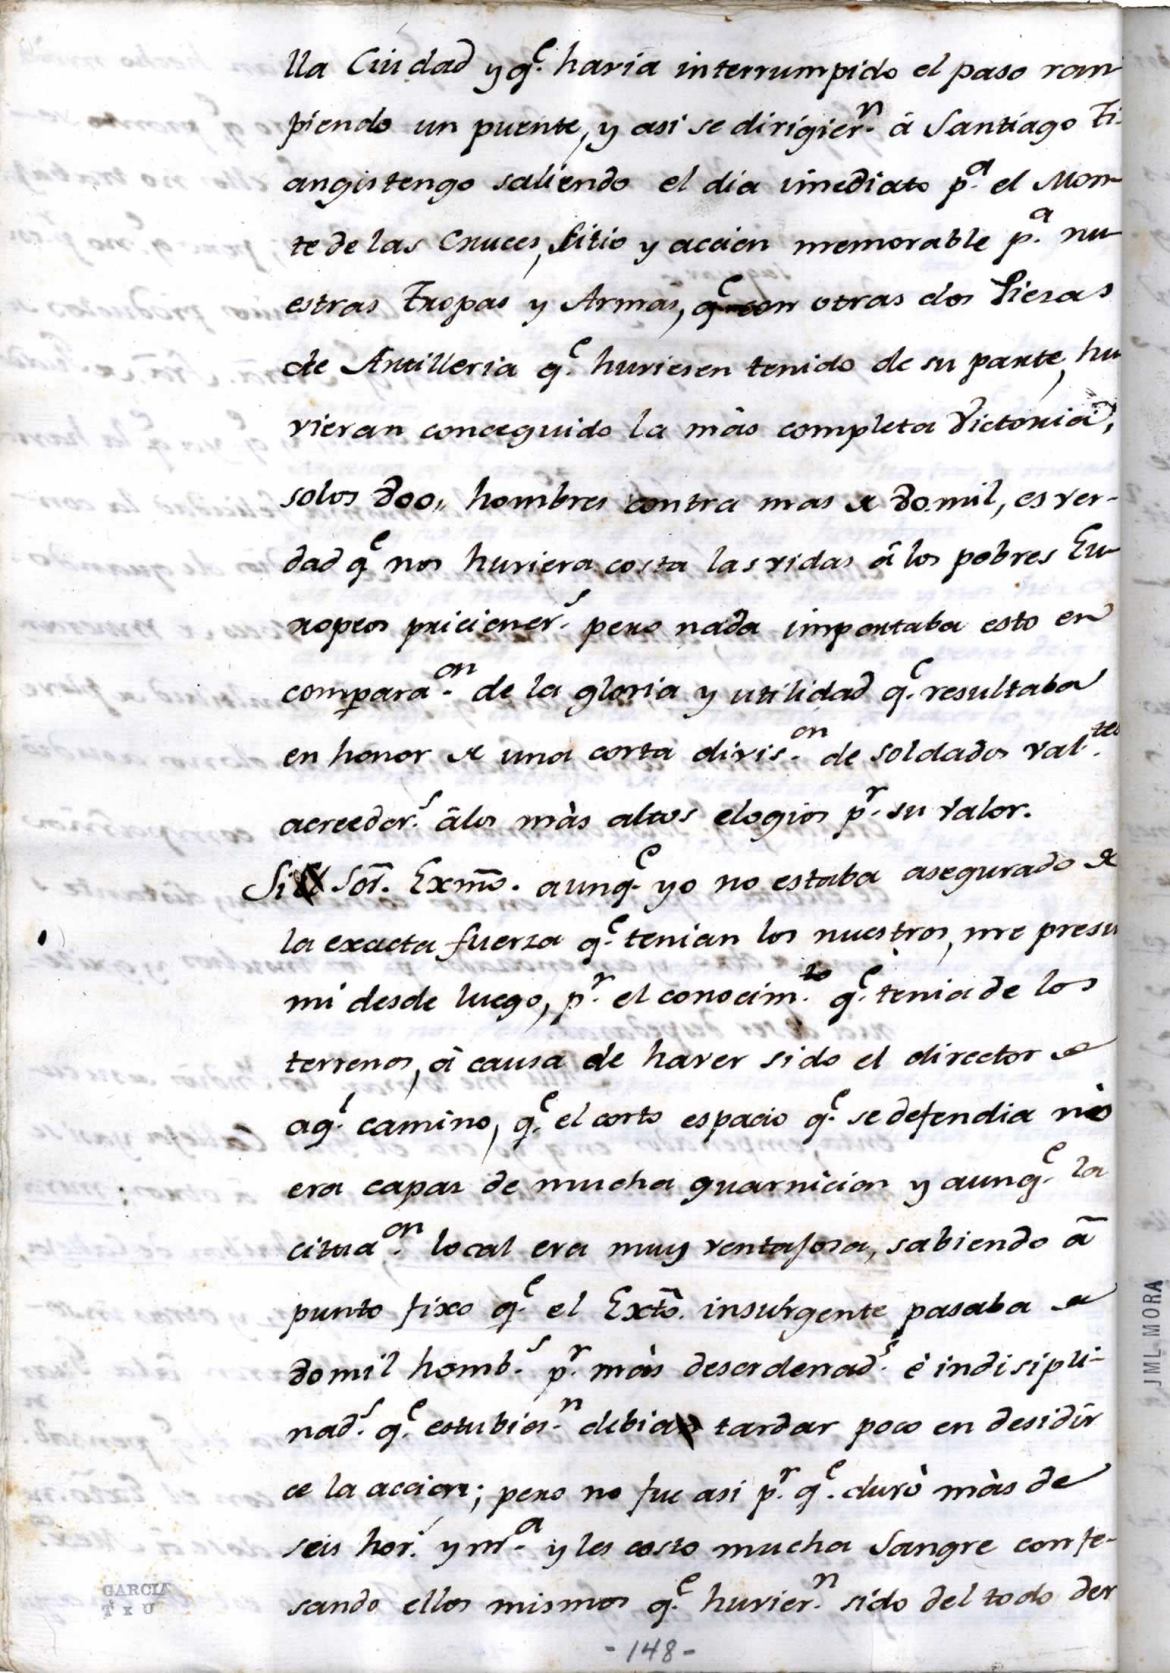 lla Ciudad y q.e havia interrumpido el paso rom
piendo un puente, y asi se dirigier.n â Santiago Ti
anguistengo saliendo el dia imediato p.a el Mon
te de las Cruces, sitio y accion memorable p.a nu
estras Tropas y Armas, q.e con otras dos Piezas
de Artilleria q.e huviesen tenido de su parte, hu
vieran conceguido la mâs completa Victoria,
solos 800,, hombres contra mas de 80.mil, es ver-
dad q.e nos huviera costa las vidas â los pobres Eu
ropeos pricioner.s pero nada importaba esto en
compara.on de la gloria y utilidad q.e resultaba
en honor de una corta divis.on de soldados val.tes
acreedor.s âlos màs altos elogios p.r su valor.
Si Sôr. Exmô. aunq.e yo no estaba asegurado de
la exacta fuerza q.e tenian los nuestros, me presu
mi desde luego, p.r el conocim.to q.e tenia de los
terrenos, â causa de haver sido el director de
aq.l camino, q.e el corto espacio q.e se defendia no
era capaz de mucha guarnicion y aunq.e la
citua.on local era muy ventajosa, sabiendo â
punto fixo q.e el Extô. insurgente pasaba de
80mil homb.s p.r màs desordenad.s è indisipli-
nad.s q.e estubies.n debia tardar poco en desidir
ce la accion; pero no fue asi p.r q.e durò màs de
seis hor.s y m.a y les costo mucha Sangre confe-
sando ellos mismos q.e huvier.n sido del todo der
-148-
GARCIA
JML MORA